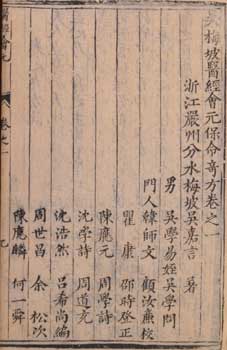 吳梅坡醫經會元保命奇方卷之一
浙江嚴州分水梅坡吳嘉言 著
男 吳學易姪吳學問
門人韓師文 顧汝燕校
瞿康 邵時登正
陳應元 周學詩
沈學詩 周道充
沈浩然 呂希尚編
周世昌 余松次
陳應麟 何一舜
卷之一